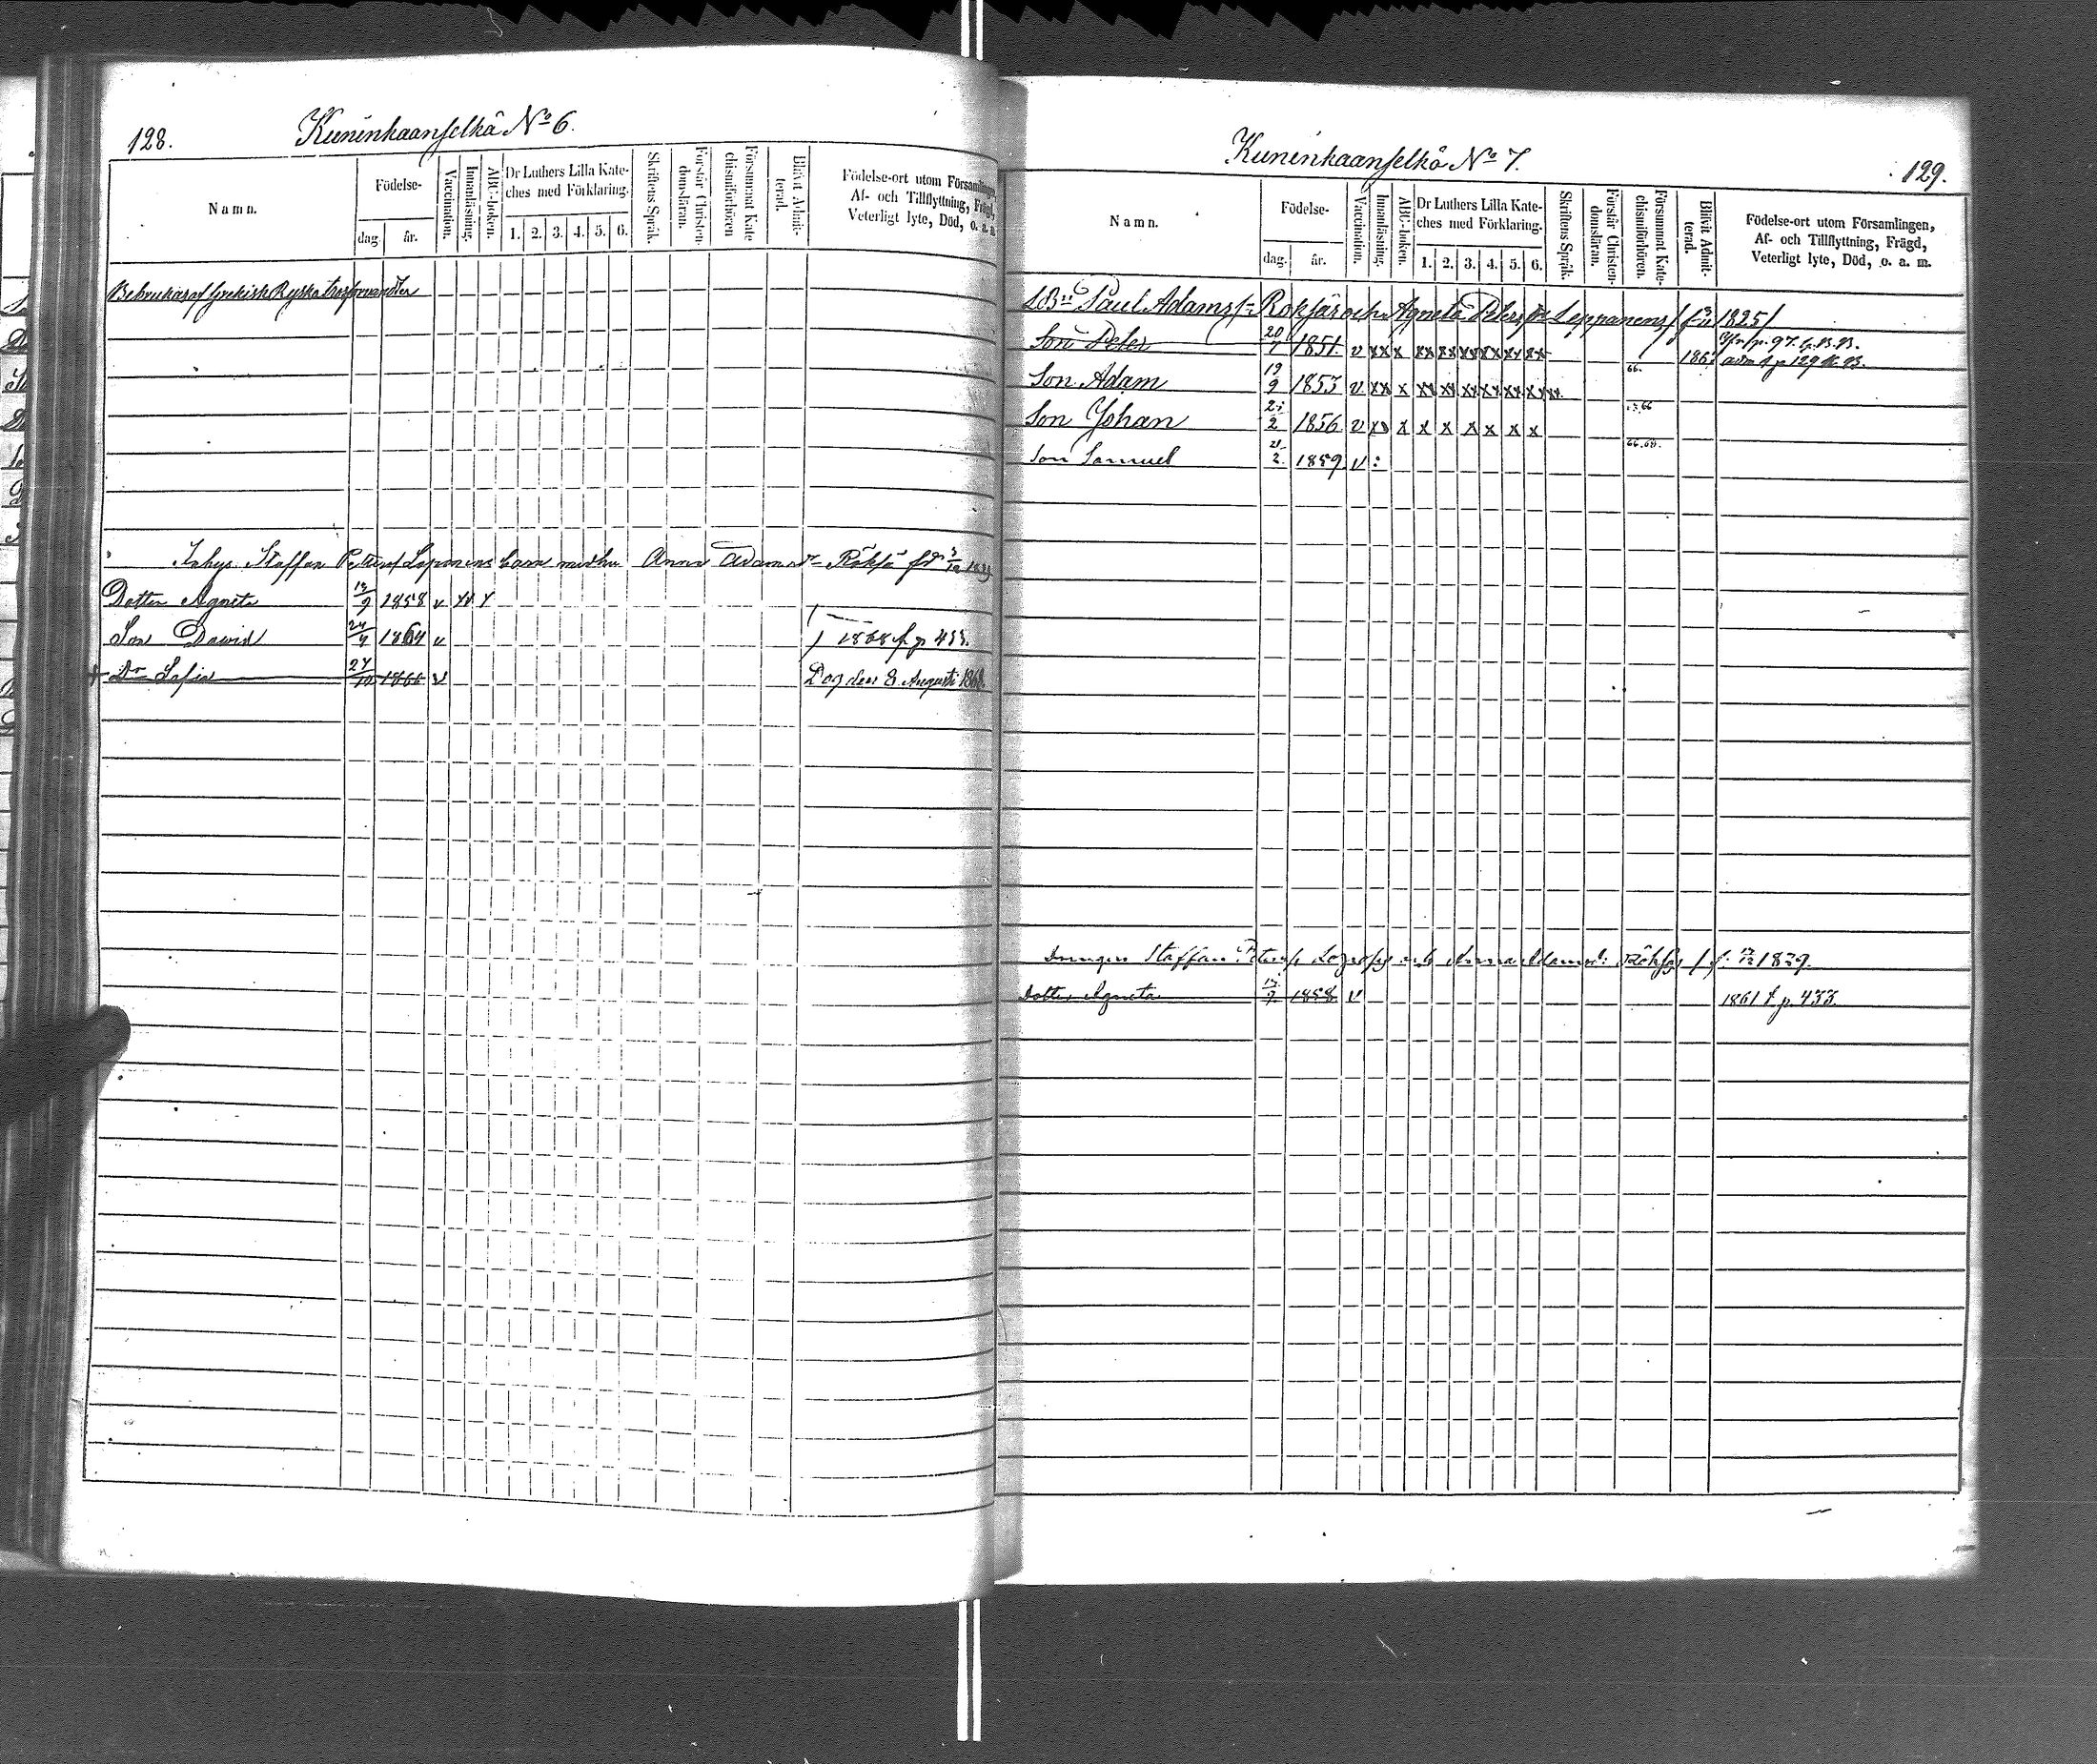 128.
Kuninkaanselkä No 6.
Namn.
Födelse-
dag.
år.
Vaccination.
Innanläsning.
ABC-boken.
Dr Luthers Lilla Kate-
ches med Förklaring.
1. 2. 3. 4. 5. 6.
Skriftens Språk.
Förstår Christen-
domsläran.
Försummat Kate
chismiförhören
Blifvit Admit-
terad.
Födelse-ort utom Församlingen,
Af- och Tillflyttning, Frägd,
Veterligt lyte, Död, o. a. m.
Brukas af Grekisk Ryska
Inhys. Staffan barn med hu Anna Adamsd
Dotter Agneta 9 1858 v
Son David 1864 v 1868 f. p 433.
Dr Sofia 27/10 1866 v Dog den 8 Augusti 1868.
Kuninkaanselkä No 7.
129.
Namn.
Födelse-
dag.
år.
Vaccination.
Innanläsning.
ABC-boken.
Dr Luthers Lilla Kate-
ches med Förklaring.
1. 2. 3. 4. 5. 6.
Skriftens Språk.
Förstår Christen-
domsläran.
Försummat Kate-
chismiförhören.
Blifvit Admit-
terad.
Födelse-ort utom Församlingen,
Af- och Tillflyttning, Frägd,
Veterligt lyte, Död, o. a. m.
Paul Adamss: Roksjär och Agneta Petersdr Leppänens 1825/
Son Peter 20/7 1851. v xx x xx xx xx xx xx xx p. 97.
p 129
Son Adam 19/9 1853 v xx x xx xx xx xx xx 66.
Son Johan 2 1856 v x x x x x x x 66
Son Samuel 2 1859 v : 66.68.
Staffan och Anna Adamsd: 1829.
Dotter Agneta 9 1858 v 1861 f. p. 433.